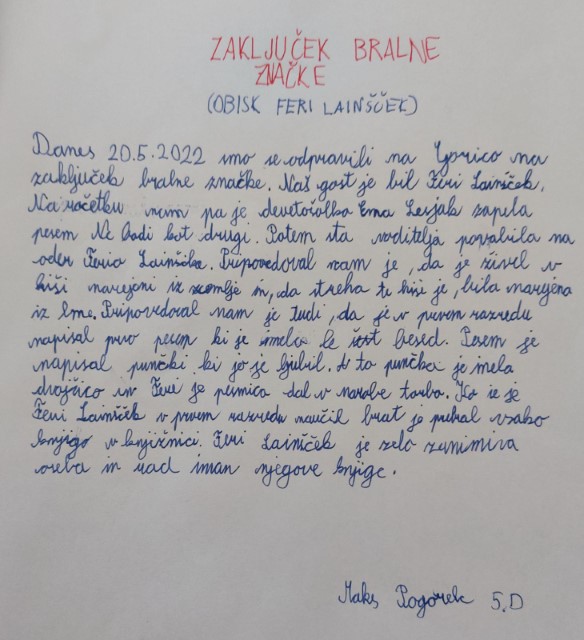 ZAKLJUČEK BRALNE
ZNAČKE
(OBISK FERI LAINŠČEK)
Danes 20.5.2022 smo se odpravili na Gorico na
zaključek bralne značke. Naš gost je bil Feri Lainšček.
Na začetku nam pa je devetošolka Ema Lesjak zapela
pesem Ne bodi kot drugi. Potem sta voditelja povabila na
oder Feria Lainščka. Pripovedoval nam je, da je živel v
hiši narejeni iz zemlje in, da streha te hiše je, bila narejena
iz slme. Pripovedoval nam je tudi, da je v prvem razredu
napisal prvo pesem ki je imela le šest besed. Pesem je
napisal punčki ki jo je ljubil. A ta punčka je imela
dvojčico in Feri je pesmico dal v narobe torbo. Ko se je
Feri Lainšček v prvem razredu naučil brat je prebral vsako
knjigo v knjižnici. Feri Lainšček je zelo zanimiva
oseba in rad imam njegove knjige.
Maks Pogorek 5.D